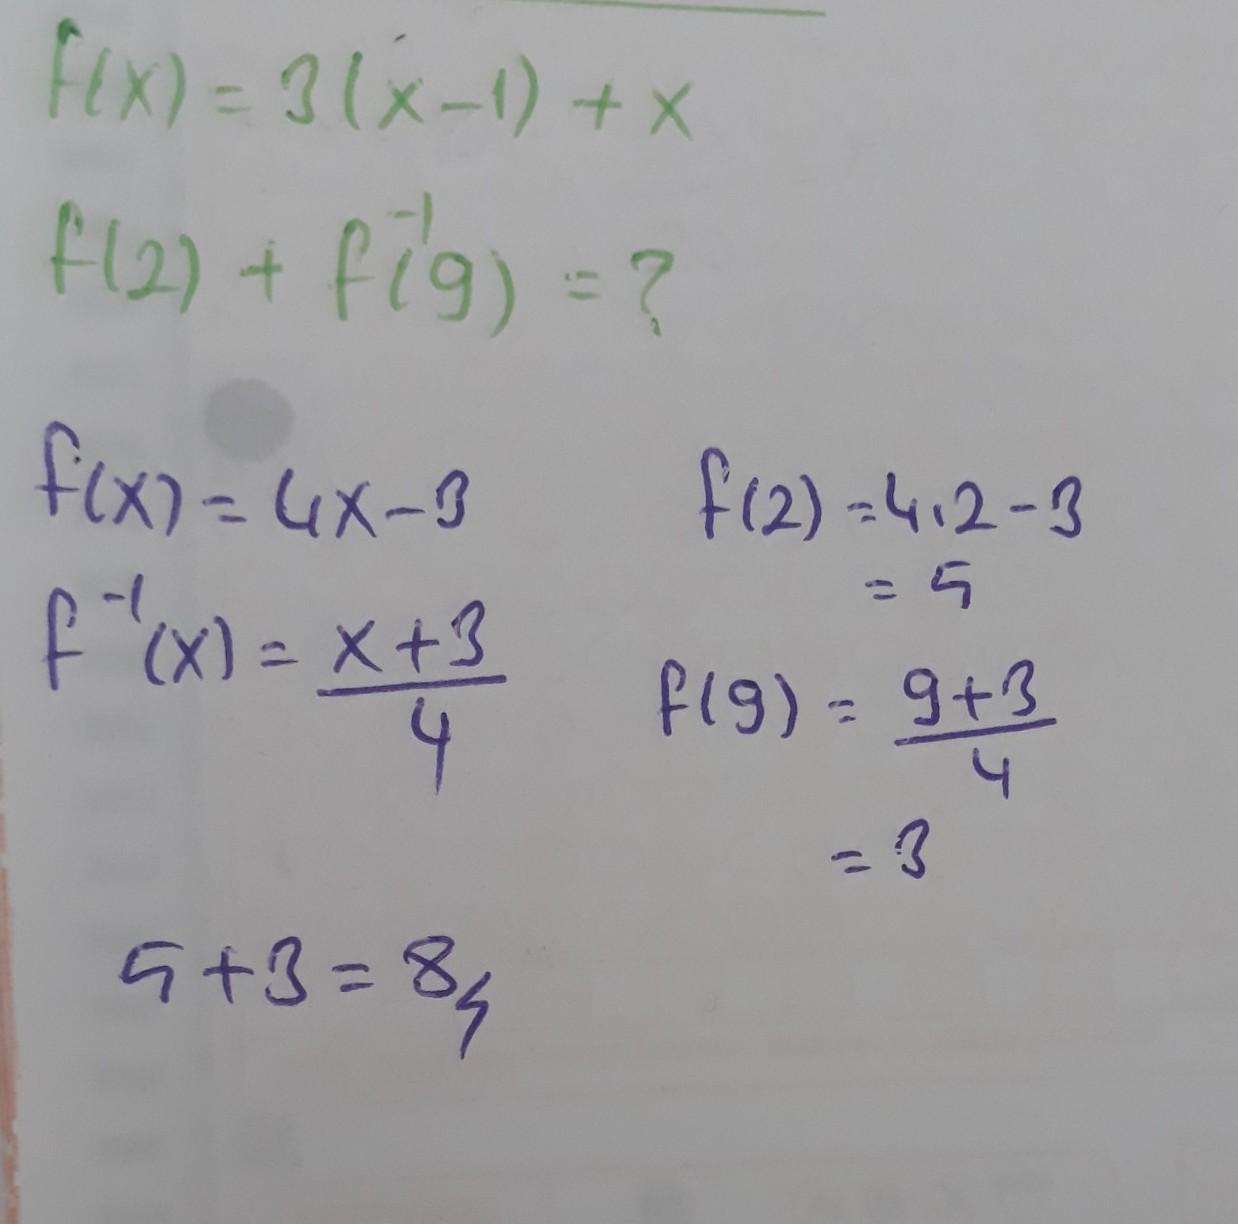 f(x) = 3(x-1) + x
f(2) + f⁻¹(9) = ?
f(x) = 4x-3
f⁻¹(x) = x+3
4
f(2) = 4.2-3
= 5
f(9) = 9+3
4
= 3
5+3 = 8